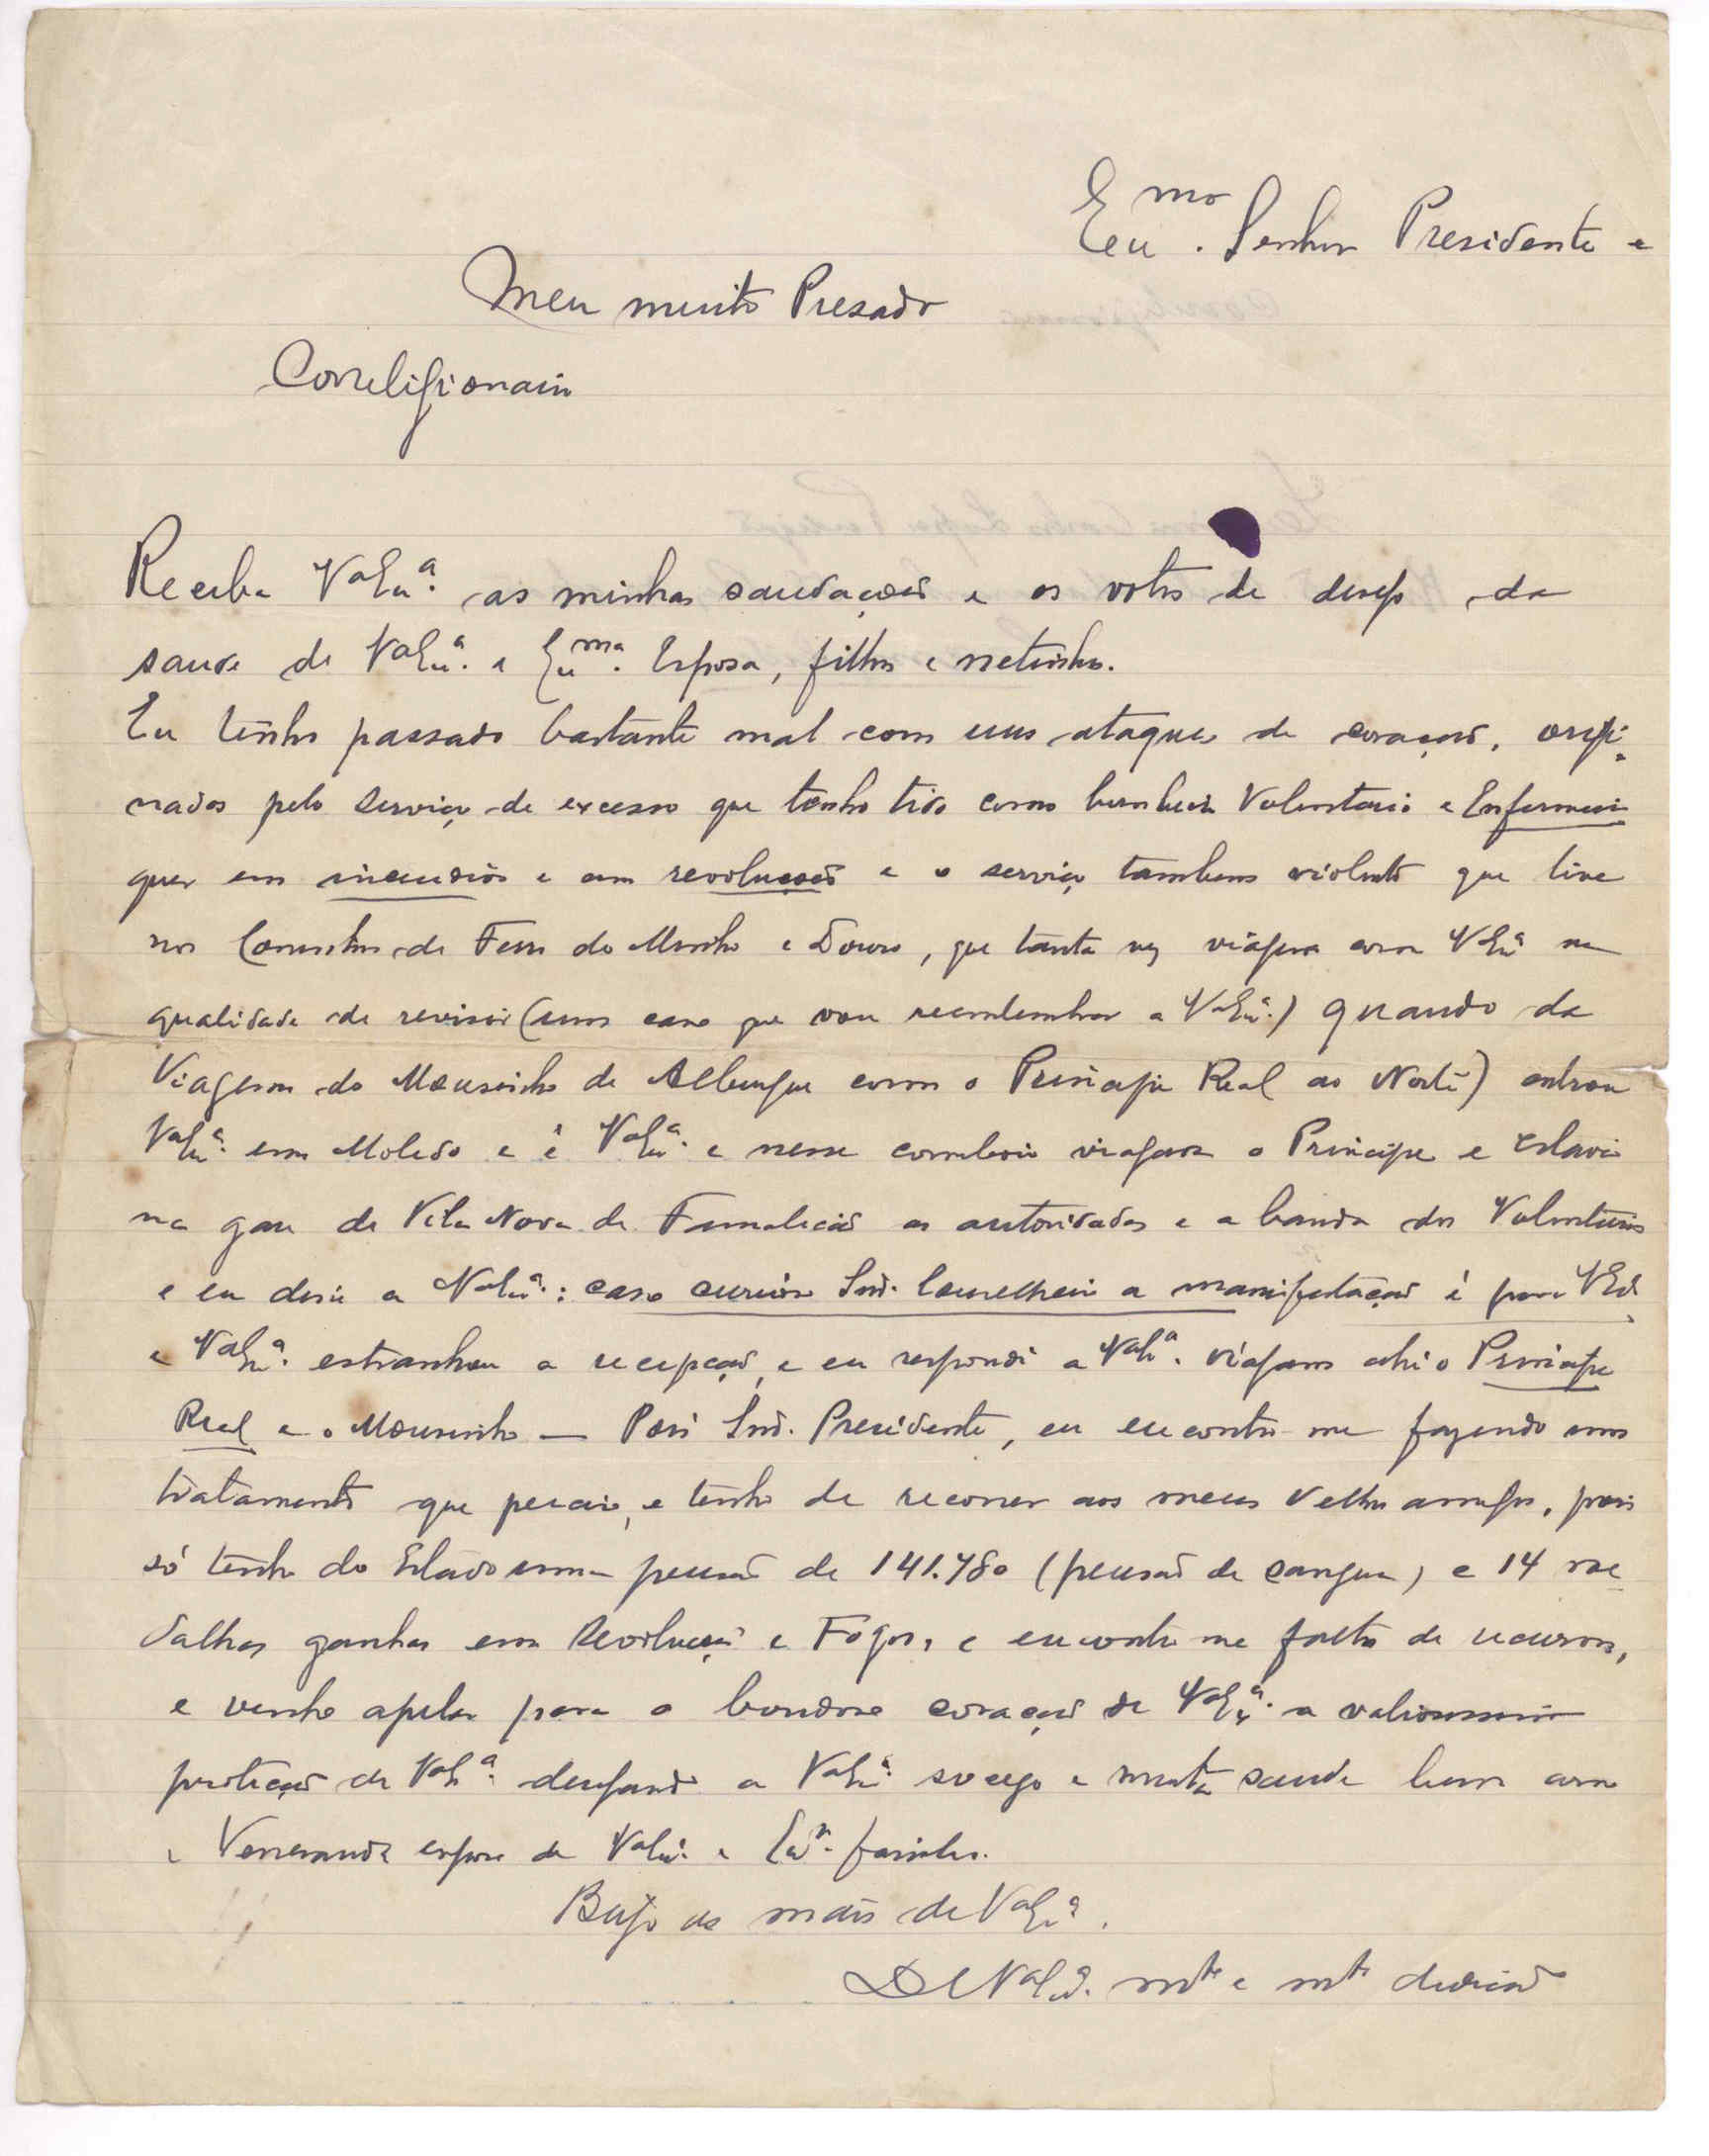 Exmo. Senhor Presidente e
Meu muito Presado
Correligionario
Receba Va Exa. as minhas saudações e os votos de desejo da
saude de Va Exa. e Exma. Esposa, filhos e netinhos.
Eu tenho passado bastante mal com uns ataques de coração, origi-
nados pelo serviço de excesso que tenho tido como bombeiro Voluntario e Enfermeiro
quer em incendios e em revoluções e o serviço tambem violento que tive
nos Caminhos de Ferro do Minho e Douro, que tanta vez viajava com V Exa na
qualidade de revisor (um caso que vou recordar a Va Exa.) quando da
Viagem do Mousinho de Albuquerque com o Principe Real ao Norte) entrou
Va Exa. em Moledo e Va Exa. e nesse comboio viajava o Principe e estava
na gare de Vila Nova de Famalicão as autoridades e a banda dos Voluntarios
e eu disse a Va Exa.: caso curioso Snr. Conselheiro a manifestação é para V Exa.
e Va Exa. estranhou a recepção, e eu respondi a Va Exa. viajam ahi o Principe
Real e o Mousinho — Pois Snr. Presidente, eu encontro-me fazendo uns
tratamentos que preciso, e tenho de recorrer aos meus Velhos amigos, pois
só tenho do Estado uma pensão de 141.780 (pensão de sangue) e 14 me-
dalhas ganhas em Revolução e Fogos, e encontro me falto de recursos,
e venho apelar para o bondoso coração de Va Exa. a
proteção de Va Exa. desejando a Va Exa. socego e muita saude bem como
e Veneranda esposa de Va Exa. e Exa. familia.
Beijo as mãos de Va Exa.
De Va Exa. mto e mto dedicado